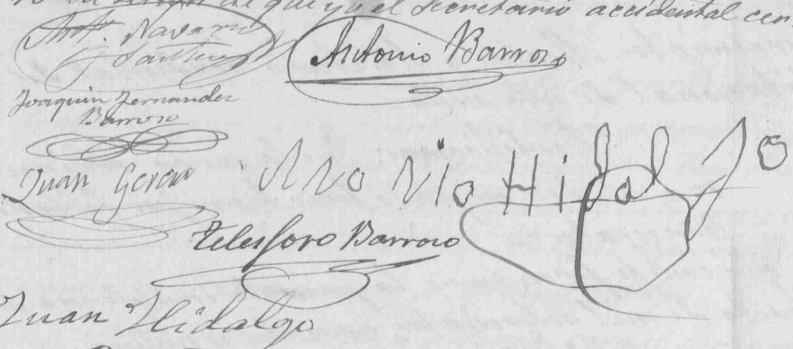 de que yo el Secretario accidental cer
Navarro
Antonio Barroso
Joaquin Fernandez
Barroso
Juan
Hidalgo
Telesforo Barroso
Juan Hidalgo